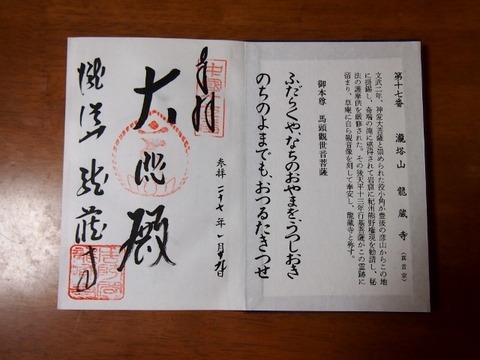 第十七番 瀧塔山 龍蔵寺 (真言宗)
文武二年、神変大菩薩と崇められた役小角が豊後の彦山からこの地
に掛錫し、奇瑞の滝に感得されて岩窟に紀州熊野権現を勧請し、秘
法の護摩供を厳修された。その後天平十三年行基菩薩がこの霊跡に
宿まり、草庵に自ら観音像を刻して奉安し、龍蔵寺と称す。
御本尊 馬頭観世音菩薩
ふだらくや、なちのおやまを、うつしおき
のちのよまでも、おつるたきつせ
奉拝
大悲殿
参拝 二十七年 一月
瀧塔山 龍蔵寺